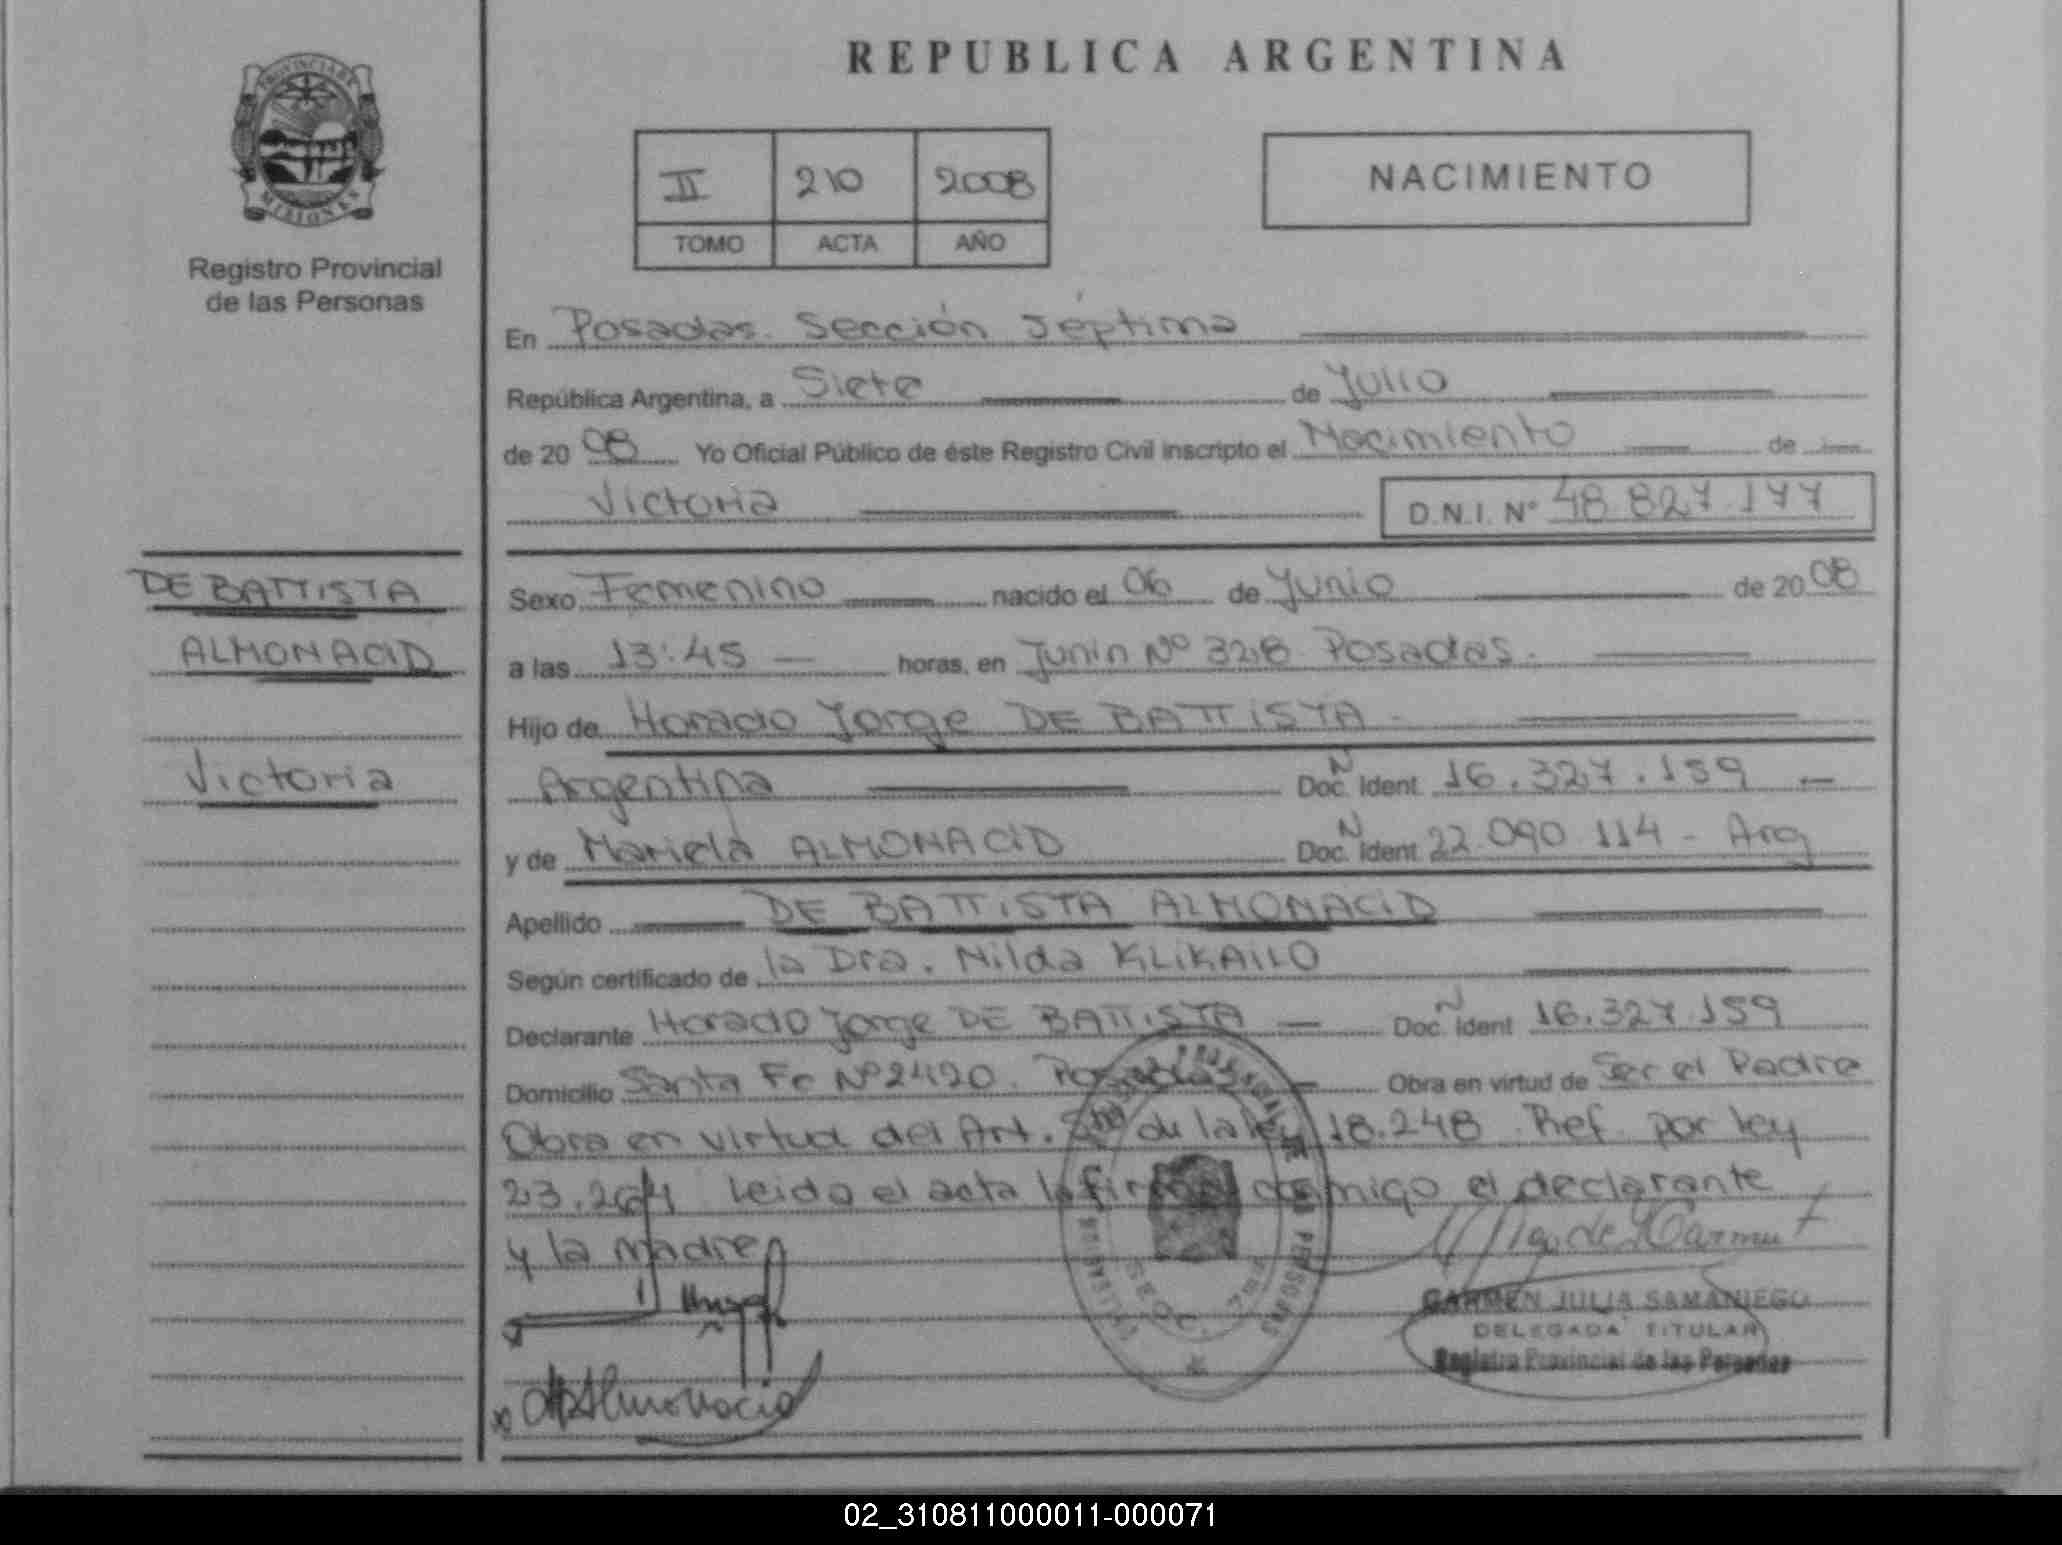 REPUBLICA ARGENTINA
PROVINCIA DE MISIONES
Registro Provincial
de las Personas
II 210 2008
TOMO ACTA AÑO
NACIMIENTO
En Posadas. Sección Séptima
República Argentina, a Siete de Julio
de 20 08 Yo Oficial Público de éste Registro Civil inscripto el Nacimiento de
Victoria D.N.I. Nº 48.827.177
DE BATTISTA
ALMONACID
Victoria
Sexo Femenino nacido el 06 de Junio de 20 08
a las 13:45 horas, en Junin Nº 328. Posadas.
Hijo de Horacio Jorge DE BATTISTA
Argentina Doc. Ident N 16.327.159
y de Mariela ALMONACID Doc. Ident N 22.090.114 - Arg
Apellido DE BATTISTA ALMONACID
Según certificado de la Dra. Nilda KLIKAILO
Declarante Horacio Jorge DE BATTISTA Doc. Ident N 16.327.159
Domicilio Santa Fe Nº 2420. Posadas Obra en virtud de Ser el Padre
Obra en virtud del Art. de la ley 18.248. Ref. por ley
23.264 Leida el acta la firma conmigo el declarante
y la madre
Almonacid
CARMEN JULIA SAMANIEGO
DELEGADA TITULAR
Registro Provincial de las Personas
02_310811000011-000071